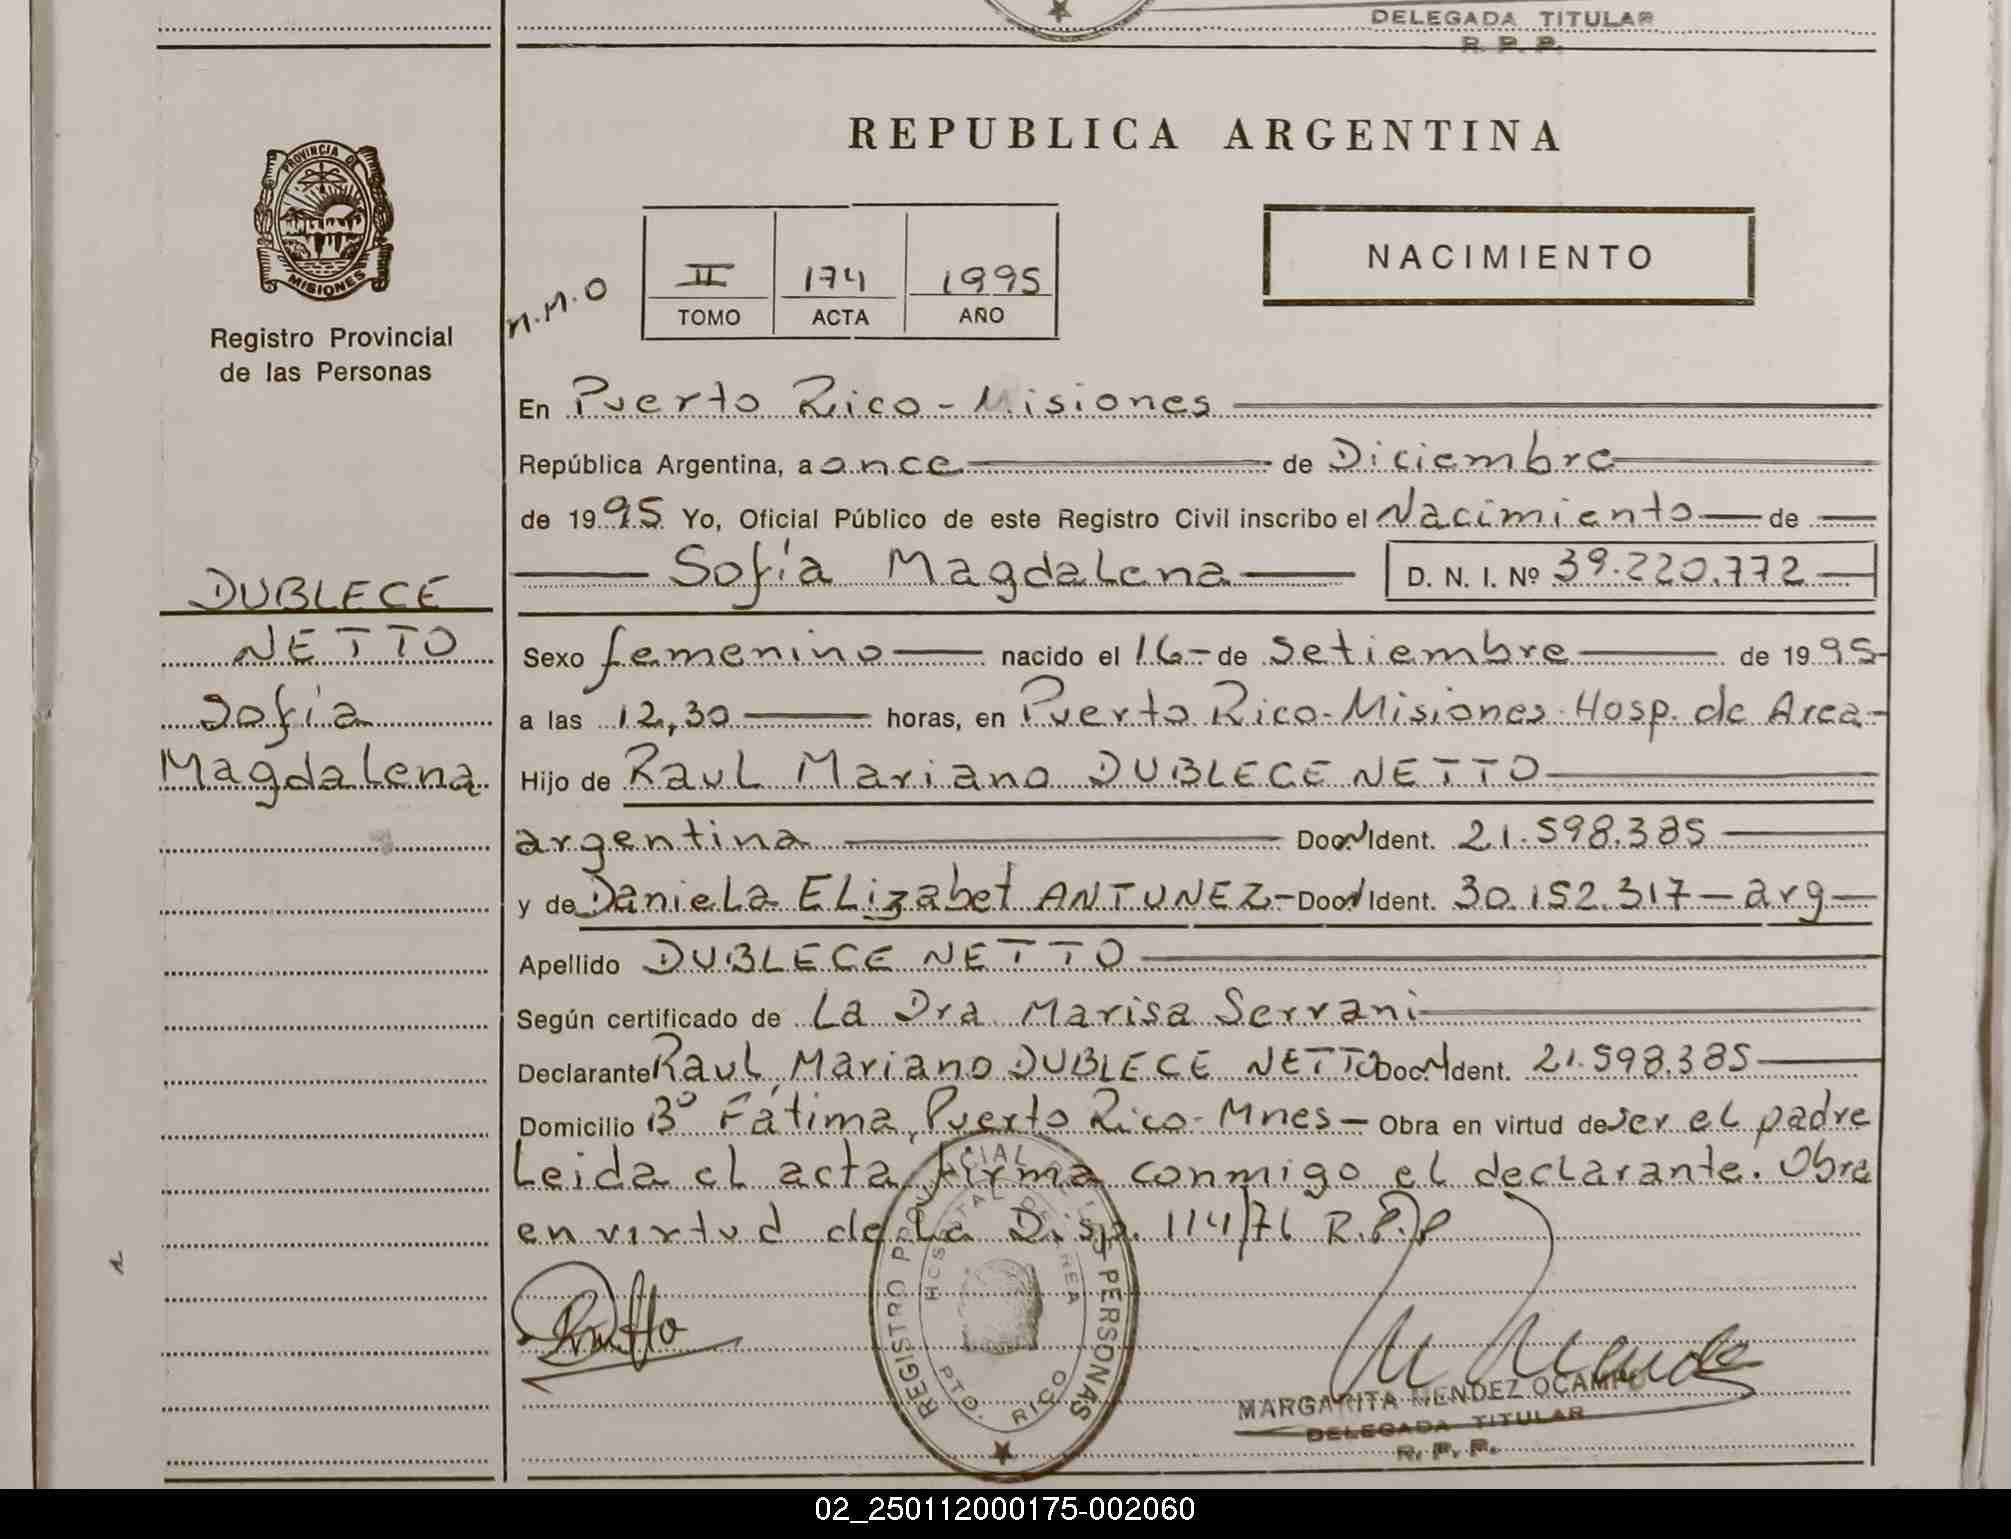 DELEGADA TITULAR
R. P. P.
PROVINCIA DE
MISIONES
Registro Provincial
de las Personas
REPUBLICA ARGENTINA
NACIMIENTO
N.M.O
II 174 1995
TOMO ACTA AÑO
En Puerto Rico - Misiones
República Argentina, a once de Diciembre
de 1995 Yo, Oficial Público de este Registro Civil inscribo el Nacimiento de
Sofía Magdalena D. N. I. Nº 39.220.772
DUBLECE
NETTO
Sofía
Magdalena
Sexo femenino nacido el 16 - de Setiembre de 1995
a las 12,30 horas, en Puerto Rico - Misiones - Hosp. de Area -
Hijo de Raul Mariano DUBLECE NETTO
argentina Doc. N Ident. 21.598.385
y de Daniela ELizabet ANTUNEZ - Doc. N Ident. 30.152.317 - arg -
Apellido DUBLECE NETTO
Según certificado de La Dra Marisa Serrani
Declarante Raul Mariano DUBLECE NETTO Doc. N Ident. 21.598.385
Domicilio Bº Fátima, Puerto Rico - Mnes - Obra en virtud de ser el padre
Leida el acta firma conmigo el declarante. Obra
en virtud de La Disp. 114/76 R.P.P
REGISTRO PROVINCIAL DE LAS PERSONAS
HOSPITAL DE AREA
PTO. RICO
MARGARITA MENDEZ OCAMPO
DELEGADA TITULAR
R. P. P.
02_250112000175-002060